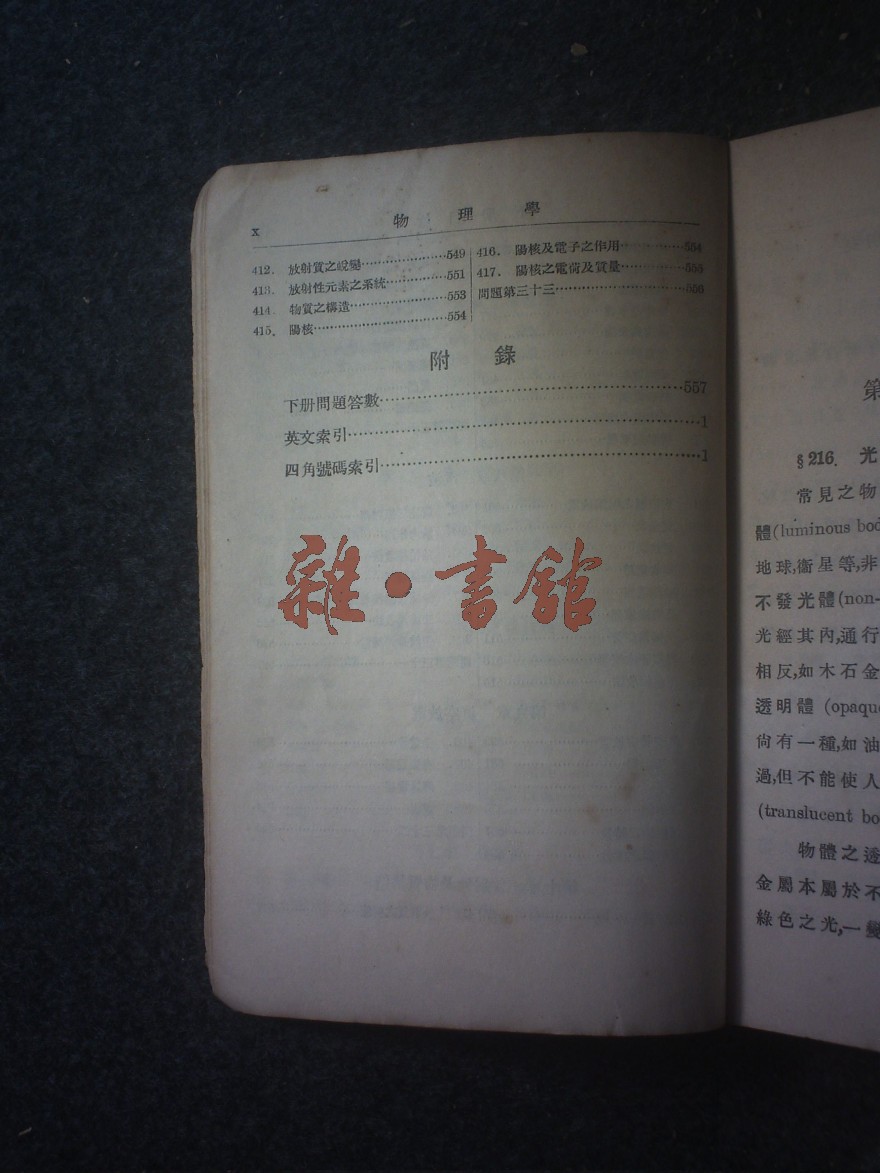 x 物理學
412. 放射質之蛻變 549
413. 放射性元素之系統 551
414. 物質之構造 553
415. 陽核 554
416. 陽核及電子之作用 554
417. 陽核之電荷及質量 555
問題第三十三 556
附錄
下册問題答數 557
英文索引 1
四角號碼索引 1
雜•書館
第
§216. 光
常見之物
體(luminous bod
地球,衞星等,非
不發光體(non-
光經其內,通行
相反,如木石金
透明體 (opaque
尙有一種,如油
過,但不能使人
(translucent bo
物體之透
金屬本屬於不
綠色之光,一變